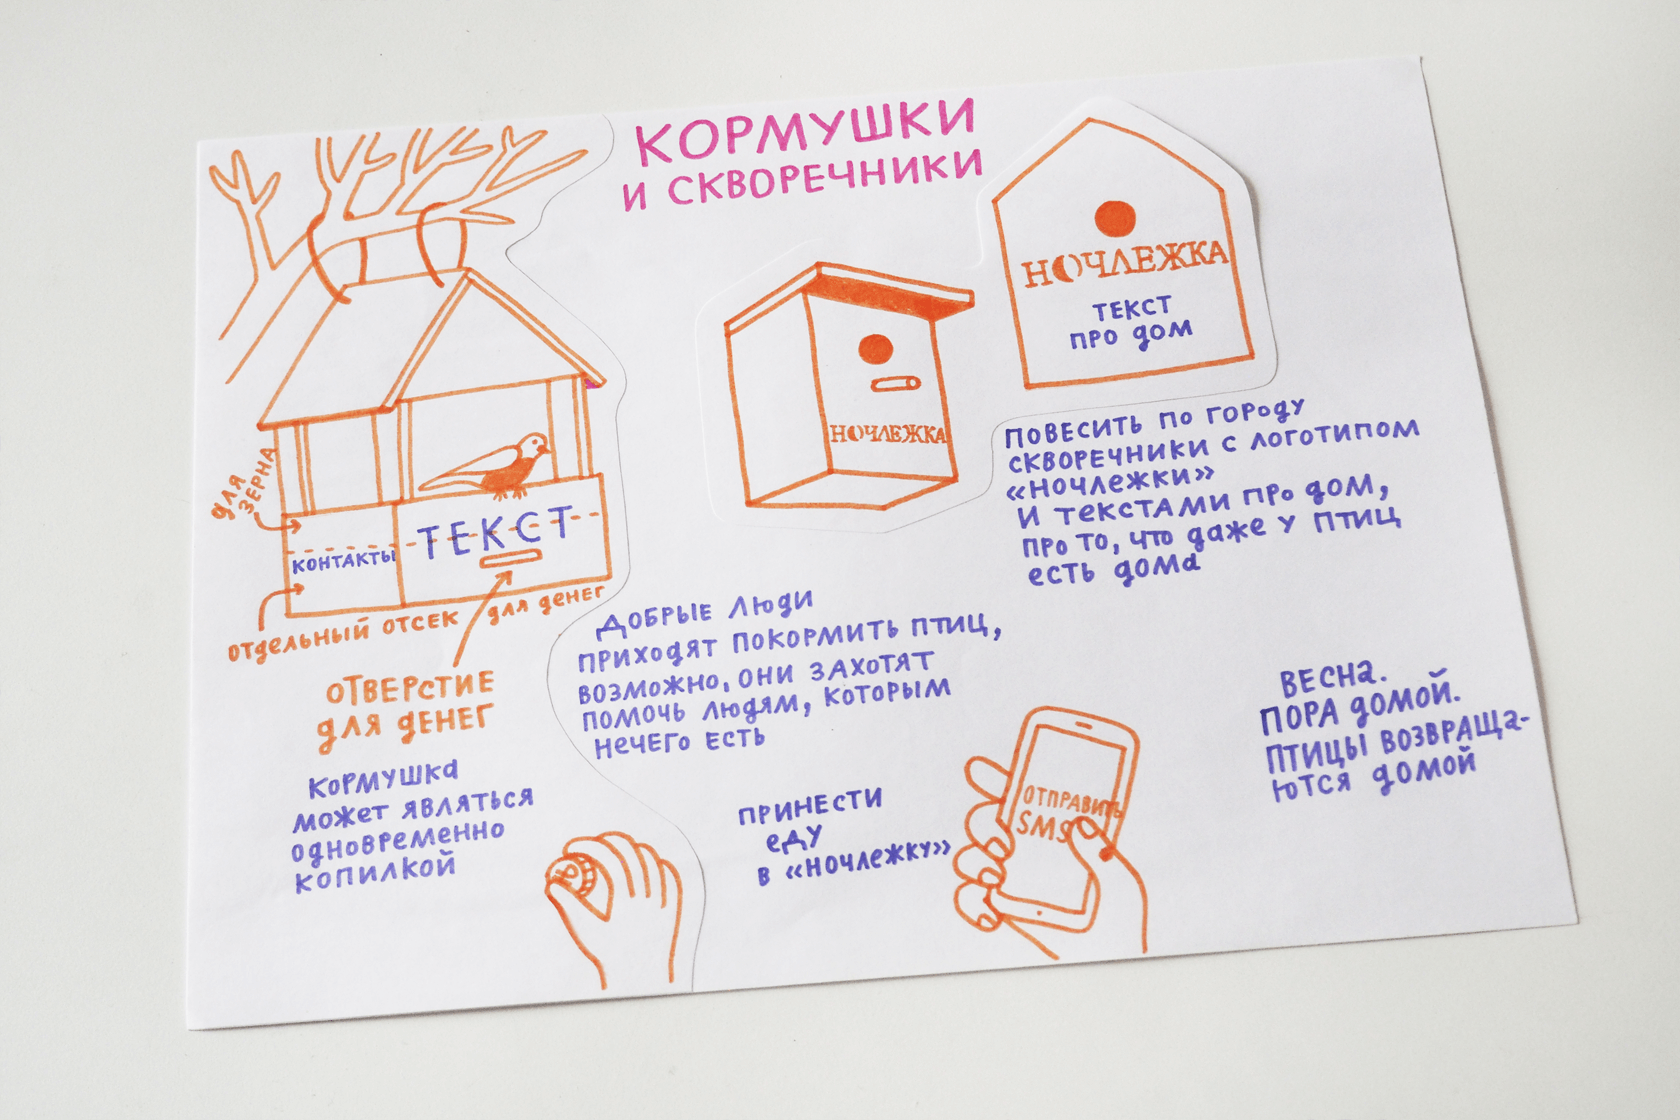 КОРМУШКИ
И СКВОРЕЧНИКИ
ДЛЯ
ЗЕРНА
КОНТАКТЫ
ТЕКСТ
ОТДЕЛЬНЫЙ ОТСЕК ДЛЯ ДЕНЕГ
ОТВЕРСТИЕ
ДЛЯ ДЕНЕГ
КОРМУШКА
МОЖЕТ ЯВЛЯТЬСЯ
ОДНОВРЕМЕННО
КОПИЛКОЙ
НОЧЛЕЖКА
НОЧЛЕЖКА
ТЕКСТ
ПРО ДОМ
ПОВЕСИТЬ ПО ГОРОДУ
СКВОРЕЧНИКИ С ЛОГОТИПОМ
«НОЧЛЕЖКИ»
И ТЕКСТАМИ ПРО ДОМ,
ПРО ТО, ЧТО ДАЖЕ У ПТИЦ
ЕСТЬ ДОМА
ДОБРЫЕ ЛЮДИ
ПРИХОДЯТ ПОКОРМИТЬ ПТИЦ,
ВОЗМОЖНО, ОНИ ЗАХОТЯТ
ПОМОЧЬ ЛЮДЯМ, КОТОРЫМ
НЕЧЕГО ЕСТЬ
ПРИНЕСТИ
ЕДУ
В «НОЧЛЕЖКУ»
ОТПРАВИТЬ
SMS
ВЕСНА.
ПОРА ДОМОЙ.
ПТИЦЫ ВОЗВРАЩА-
ЮТСЯ ДОМОЙ